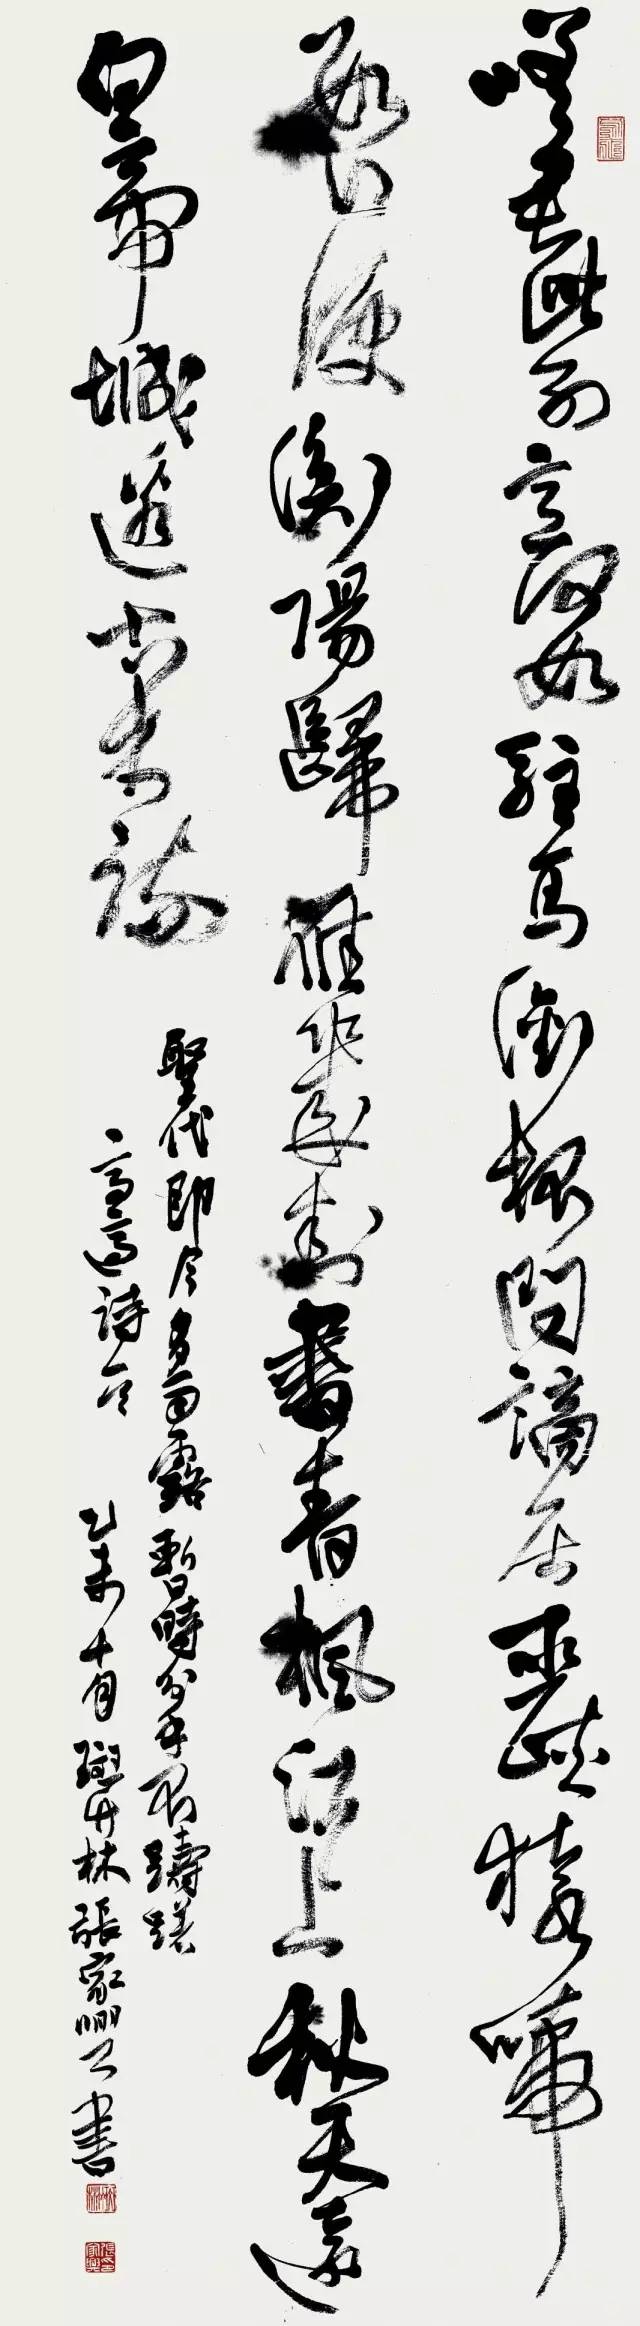 嗟君此別意何如駐馬銜杯問謫居巫峽猿啼
數行淚衡陽歸雁幾封書青楓江上秋天遠
白帝城邊古木疏
聖代即今多雨露暫時分手莫躊躇
高適詩 乙未十月斑竹林張家書